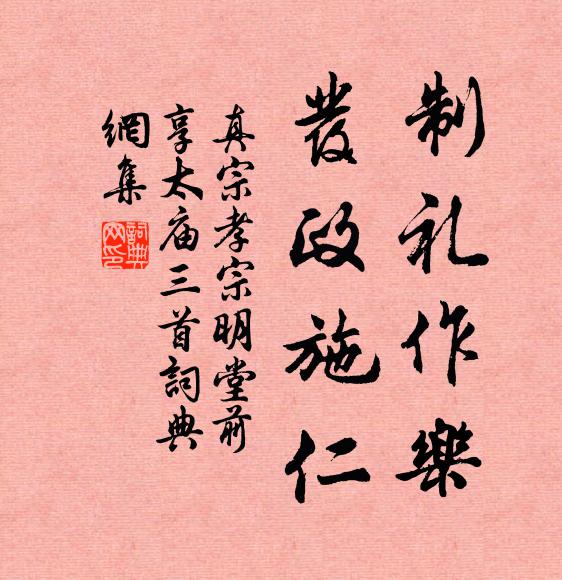 制礼作樂
發政施仁
真宗孝宗明堂前
享太庙三首詞典
網集
詞典
网印